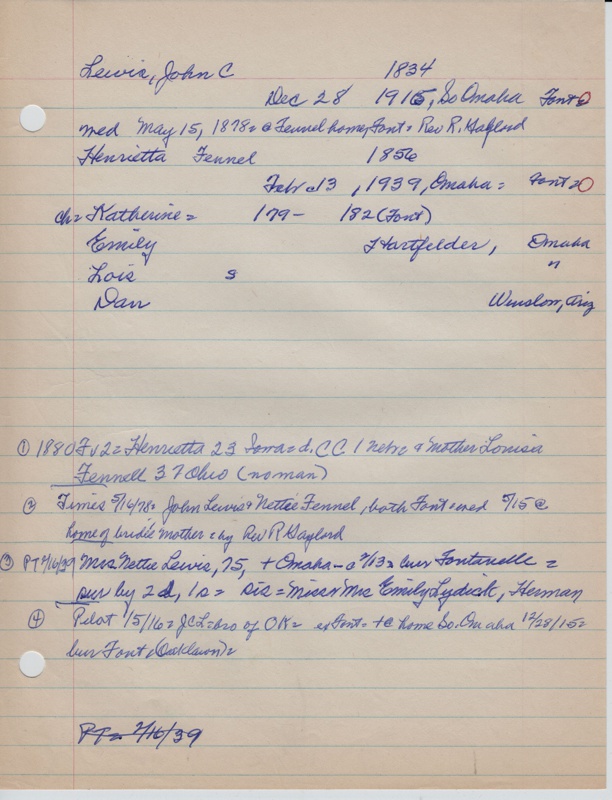 Lewis, John C 1834
Dec 28 1915, So Omaha Font
med May 15, 1878 = @ Fennel home, Font = Rev R. Gaylord
Henrietta Fennel 1856
Febr 13, 1939, Omaha = Font =
ch = Katherine = 179- 182 (Font)
Emily Hartfelder, Omaha
Lois s "
Dan Winslow, Ariz
① 1880 Fv2 = Henrietta 23 Iowa = d. CC 1 Nebr & Mother Louisa
Fennell 37 Ohio (no man)
② Times 5/16/78 = John Lewis & Nettie Fennel, both Font = med 5/15 @
home of bride's mother = by Rev R Gaylord
③ PT 2/16/39 Mrs Nettie Lewis, 75, + Omaha - 2/13 = bur Fontanelle =
sur by 2d, 1s = sis = Miss & Mrs Emily Lydick, Herman
④ Pilot 1/5/16 = JCL = bro of OK = ex Font = + @ home So. Omaha 12/28/15 =
bur Font, (Oaklawn) =
PT = 2/16/39